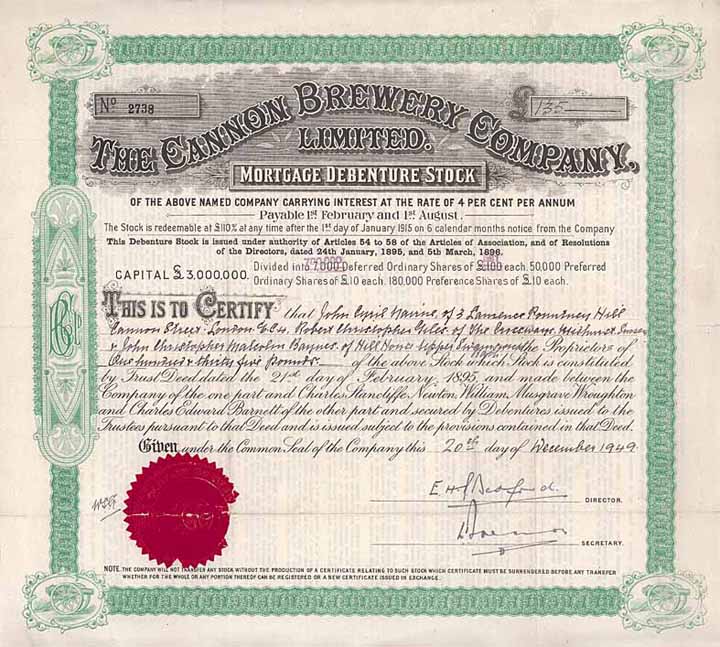 No 2738
£ 135
THE CANNON BREWERY COMPANY,
LIMITED.
MORTGAGE DEBENTURE STOCK
OF THE ABOVE NAMED COMPANY CARRYING INTEREST AT THE RATE OF 4 PER CENT PER ANNUM
Payable 1st February and 1st August.
The Stock is redeemable at £110% at any time after the 1st day of January 1915 on 6 calendar months notice from the Company
This Debenture Stock is issued under authority of Articles 54 to 58 of the Articles of Association, and of Resolutions
of the Directors, dated 24th January, 1895, and 5th March, 1896.
CAPITAL £3,000,000. Divided into Deferred Ordinary Shares of £ each. 50,000 Preferred
Ordinary Shares of £10 each. 180,000 Preference Shares of £10 each.
THIS IS TO CERTIFY that John Cyril Nairne of 3 Laurence Pountney Hill
Cannon Street London E.C.4. Robert Christopher Giles of The Midhurst Sussex
& John Christopher Malcolm Baynes of Upper the Proprietors of
One hundred & thirty five Pounds of the above Stock which Stock is constituted
by Trust Deed dated the 21st day of February, 1895, and made between the
Company of the one part and Charles Stancliffe, Newton William Musgrave Wroughton
and Charles Edward Barnett of the other part and secured by Debentures issued to the
Trustees pursuant to that Deed and is issued subject to the provisions contained in that Deed.
Given under the Common Seal of the Company this 20th day of December 1949
DIRECTOR.
SECRETARY.
NOTE. THE COMPANY WILL NOT TRANSFER ANY STOCK WITHOUT THE PRODUCTION OF A CERTIFICATE RELATING TO SUCH STOCK WHICH CERTIFICATE MUST BE SURRENDERED BEFORE ANY TRANSFER
WHETHER FOR THE WHOLE OR ANY PORTION THEREOF CAN BE REGISTERED OR A NEW CERTIFICATE ISSUED IN EXCHANGE.